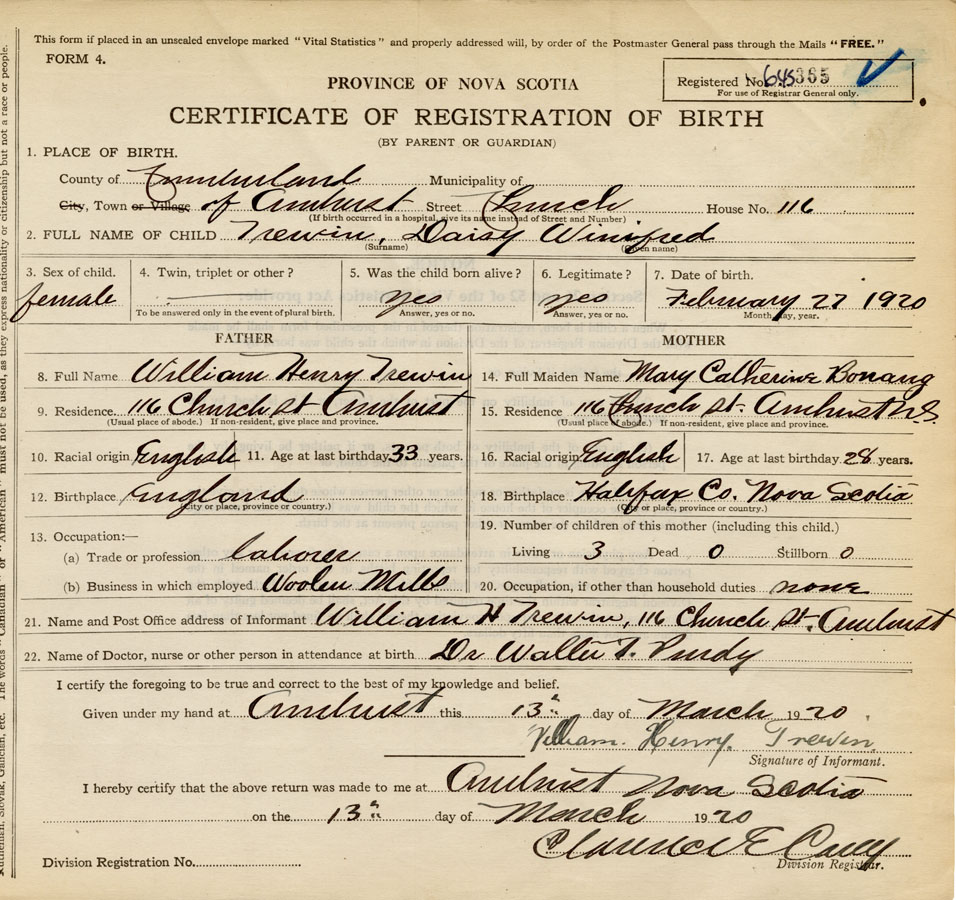 This form if placed in an unsealed envelope marked "Vital Statistics" and properly addressed will, by order of the Postmaster General pass through the Mails "FREE."
FORM 4.
Registered No. 645365
For use of Registrar General only.
PROVINCE OF NOVA SCOTIA
CERTIFICATE OF REGISTRATION OF BIRTH
(BY PARENT OR GUARDIAN)
1. PLACE OF BIRTH.
County of Cumberland Municipality of
City, Town or Village of Amherst Street Church House No. 116
(If birth occurred in a hospital, give its name instead of Street and Number)
2. FULL NAME OF CHILD Trewin, Daisy Winifred
(Surname) (Given name)
3. Sex of child. 4. Twin, triplet or other? 5. Was the child born alive? 6. Legitimate? 7. Date of birth.
female yes yes February 27 1920
To be answered only in the event of plural birth. Answer, yes or no. Answer, yes or no. Month, day, year.
FATHER MOTHER
8. Full Name William Henry Trewin 14. Full Maiden Name Mary Catherine Bonang
9. Residence 116 Church st Amherst 15. Residence 116 Church st. Amherst N.S.
(Usual place of abode.) If non-resident, give place and province. (Usual place of abode.) If non-resident, give place and province.
10. Racial origin English 11. Age at last birthday 33 years. 16. Racial origin English 17. Age at last birthday 28 years.
12. Birthplace England 18. Birthplace Halifax Co. Nova Scotia
(City or place, province or country.) (City or place, province or country.)
13. Occupation:— 19. Number of children of this mother (including this child.)
(a) Trade or profession laborer Living 3 Dead 0 Stillborn 0
(b) Business in which employed Woolen Mills 20. Occupation, if other than household duties none
21. Name and Post Office address of Informant William H Trewin, 116 Church St. Amherst
22. Name of Doctor, nurse or other person in attendance at birth Dr Walter T. Purdy
I certify the foregoing to be true and correct to the best of my knowledge and belief.
Given under my hand at Amherst this 13th day of March 1920
William. Henry. Trewin.
Signature of Informant.
I hereby certify that the above return was made to me at Amherst Nova Scotia
on the 13th day of March 1920
Clarence E
Division Registration No. Division Registrar.